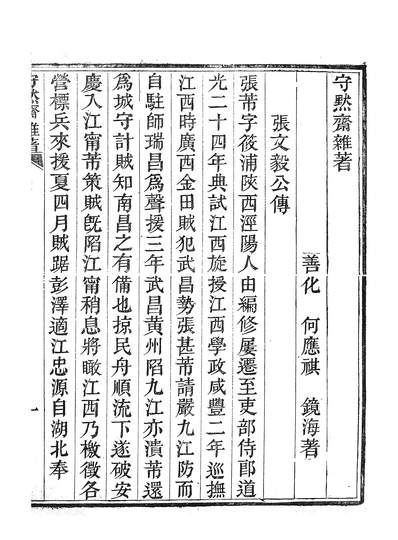 守默齋雜著
善化 何應祺 鏡海著
張文毅公傳
張芾字筱浦陝西涇陽人由編修屢遷至吏部侍郎道
光二十四年典試江西旋授江西學政咸豐二年巡撫
江西時廣西金田賊犯武昌勢張甚芾請嚴九江防而
自駐師瑞昌爲聲援三年武昌黃州陷九江亦潰芾還
爲城守計賊知南昌之有備也掠民舟順流下遂破安
慶入江甯芾策賊旣陷江甯稍息將瞰江西乃檄徵各
營標兵來援夏四月賊踞彭澤適江忠源自湖北奉
守默齋雜著
一